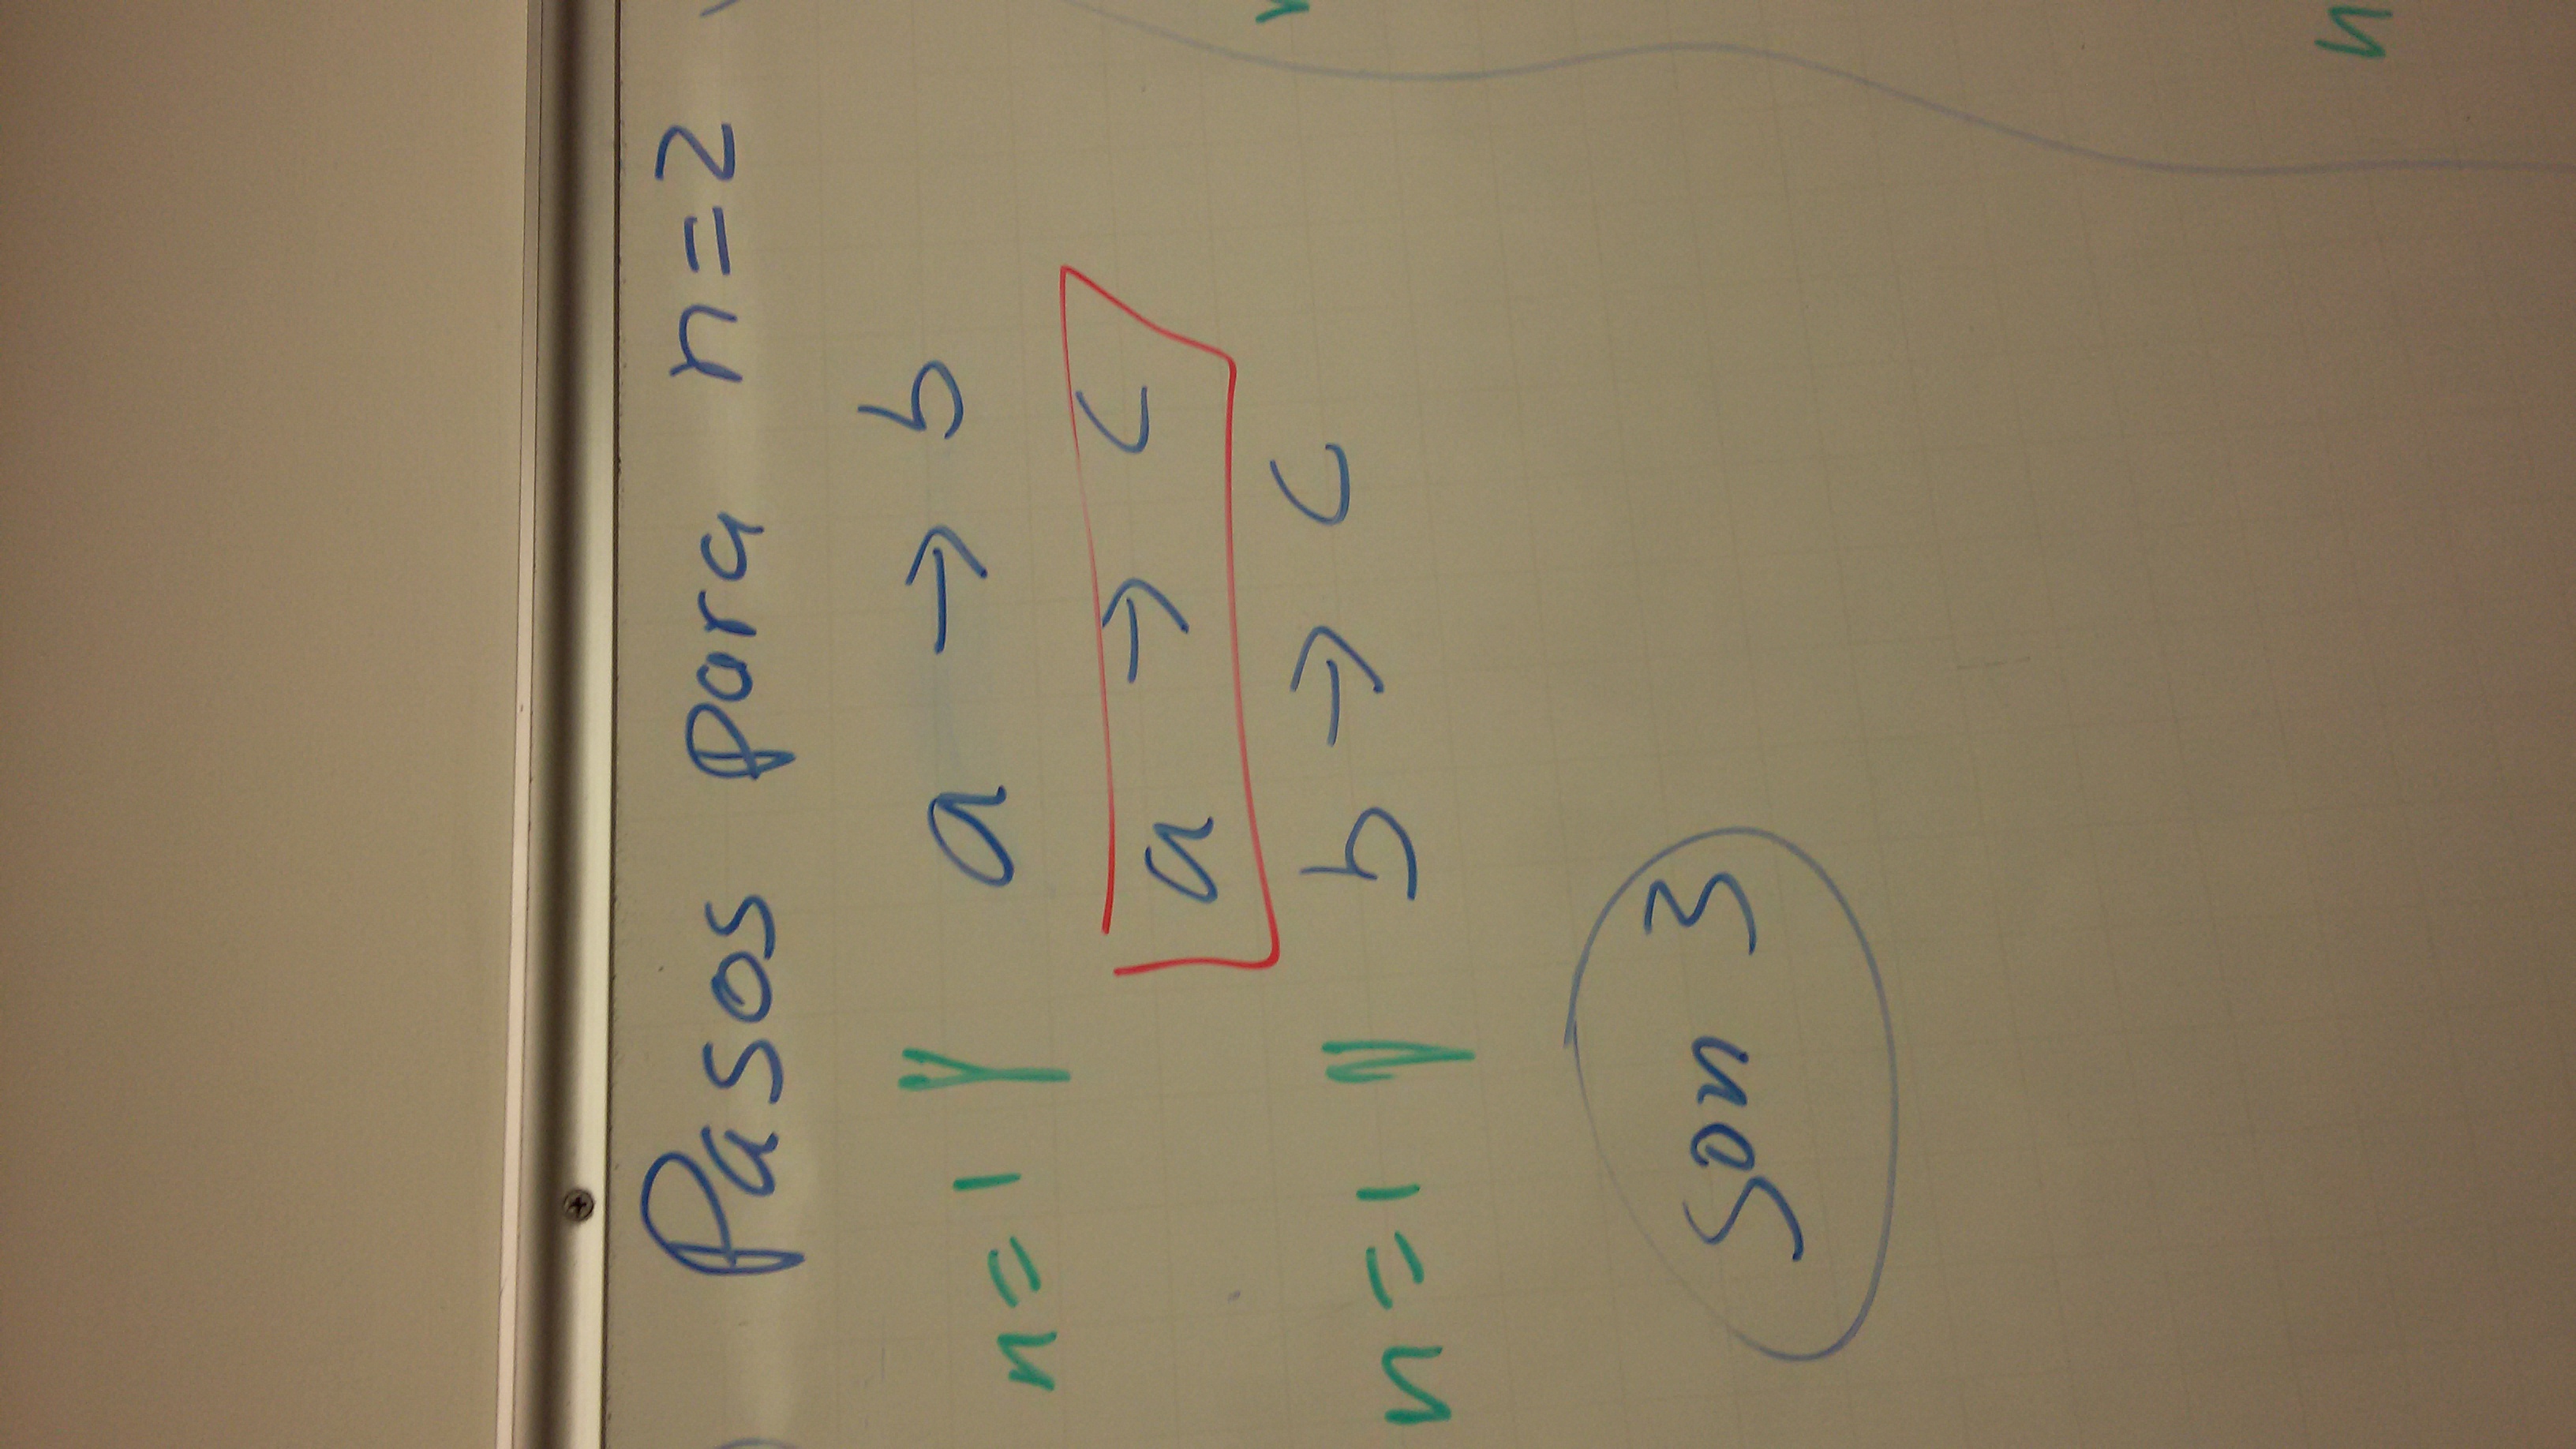 Pasos para n=2
n=1 a → b
a → c
n=1 b → c
son 3
n